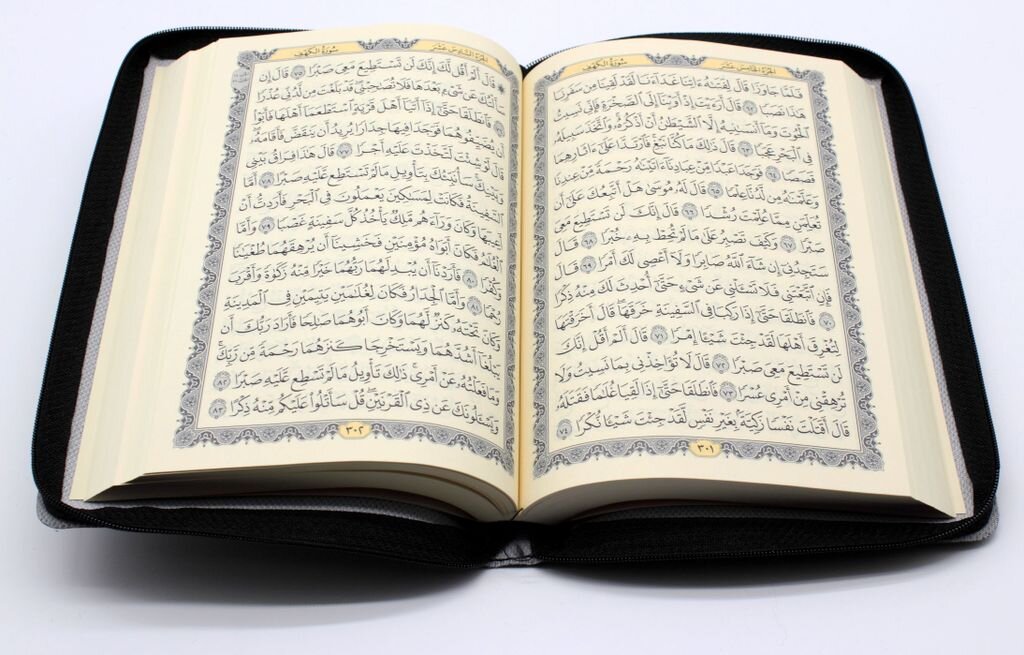 الجُزْءُ الخَامِسَ عَشَرَ سُورَةُ الكَهْفِ
فَلَمَّا جَاوَزَا قَالَ لِفَتَىٰهُ ءَاتِنَا غَدَآءَنَا لَقَدْ لَقِينَا مِن سَفَرِنَا
هَٰذَا نَصَبًا ٦٢ قَالَ أَرَءَيْتَ إِذْ أَوَيْنَآ إِلَى ٱلصَّخْرَةِ فَإِنِّي نَسِيتُ
ٱلْحُوتَ وَمَآ أَنسَىٰنِيهُ إِلَّا ٱلشَّيْطَٰنُ أَنْ أَذْكُرَهُۥۚ وَٱتَّخَذَ سَبِيلَهُۥ
فِي ٱلْبَحْرِ عَجَبًا ٦٣ قَالَ ذَٰلِكَ مَا كُنَّا نَبْغِۚ فَٱرْتَدَّا عَلَىٰٓ ءَاثَارِهِمَا
قَصَصًا ٦٤ فَوَجَدَا عَبْدًا مِّنْ عِبَادِنَآ ءَاتَيْنَٰهُ رَحْمَةً مِّنْ عِندِنَا
وَعَلَّمْنَٰهُ مِن لَّدُنَّا عِلْمًا ٦٥ قَالَ لَهُۥ مُوسَىٰ هَلْ أَتَّبِعُكَ عَلَىٰٓ أَن
تُعَلِّمَنِ مِمَّا عُلِّمْتَ رُشْدًا ٦٦ قَالَ إِنَّكَ لَن تَسْتَطِيعَ مَعِيَ
صَبْرًا ٦٧ وَكَيْفَ تَصْبِرُ عَلَىٰ مَا لَمْ تُحِطْ بِهِۦ خُبْرًا ٦٨ قَالَ
سَتَجِدُنِيٓ إِن شَآءَ ٱللَّهُ صَابِرًا وَلَآ أَعْصِي لَكَ أَمْرًا ٦٩ قَالَ
فَإِنِ ٱتَّبَعْتَنِي فَلَا تَسْـَٔلْنِي عَن شَيْءٍ حَتَّىٰٓ أُحْدِثَ لَكَ مِنْهُ ذِكْرًا
٧٠ فَٱنطَلَقَا حَتَّىٰٓ إِذَا رَكِبَا فِي ٱلسَّفِينَةِ خَرَقَهَاۖ قَالَ أَخَرَقْتَهَا
لِتُغْرِقَ أَهْلَهَا لَقَدْ جِئْتَ شَيْـًٔا إِمْرًا ٧١ قَالَ أَلَمْ أَقُلْ إِنَّكَ
لَن تَسْتَطِيعَ مَعِيَ صَبْرًا ٧٢ قَالَ لَا تُؤَاخِذْنِي بِمَا نَسِيتُ وَلَا
تُرْهِقْنِي مِنْ أَمْرِي عُسْرًا ٧٣ فَٱنطَلَقَا حَتَّىٰٓ إِذَا لَقِيَا غُلَٰمًا فَقَتَلَهُۥ
قَالَ أَقَتَلْتَ نَفْسًا زَكِيَّةًۢ بِغَيْرِ نَفْسٍ لَّقَدْ جِئْتَ شَيْـًٔا نُّكْرًا ٧٤
٣٠١
الجُزْءُ السَّادِسَ عَشَرَ سُورَةُ الكَهْفِ
۞ قَالَ أَلَمْ أَقُل لَّكَ إِنَّكَ لَن تَسْتَطِيعَ مَعِيَ صَبْرًا ٧٥ قَالَ إِن
سَأَلْتُكَ عَن شَيْءٍۭ بَعْدَهَا فَلَا تُصَٰحِبْنِيۖ قَدْ بَلَغْتَ مِن لَّدُنِّي عُذْرًا
٧٦ فَٱنطَلَقَا حَتَّىٰٓ إِذَآ أَتَيَآ أَهْلَ قَرْيَةٍ ٱسْتَطْعَمَآ أَهْلَهَا فَأَبَوْا۟
أَن يُضَيِّفُوهُمَا فَوَجَدَا فِيهَا جِدَارًا يُرِيدُ أَن يَنقَضَّ فَأَقَامَهُۥۖ
قَالَ لَوْ شِئْتَ لَتَّخَذْتَ عَلَيْهِ أَجْرًا ٧٧ قَالَ هَٰذَا فِرَاقُ بَيْنِي
وَبَيْنِكَۚ سَأُنَبِّئُكَ بِتَأْوِيلِ مَا لَمْ تَسْتَطِع عَّلَيْهِ صَبْرًا ٧٨ أَمَّا
ٱلسَّفِينَةُ فَكَانَتْ لِمَسَٰكِينَ يَعْمَلُونَ فِي ٱلْبَحْرِ فَأَرَدتُّ أَنْ
أَعِيبَهَا وَكَانَ وَرَآءَهُم مَّلِكٌ يَأْخُذُ كُلَّ سَفِينَةٍ غَصْبًا ٧٩ وَأَمَّا
ٱلْغُلَٰمُ فَكَانَ أَبَوَاهُ مُؤْمِنَيْنِ فَخَشِينَآ أَن يُرْهِقَهُمَا طُغْيَٰنًا
وَكُفْرًا ٨٠ فَأَرَدْنَآ أَن يُبْدِلَهُمَا رَبُّهُمَا خَيْرًا مِّنْهُ زَكَوٰةً وَأَقْرَبَ
رُحْمًا ٨١ وَأَمَّا ٱلْجِدَارُ فَكَانَ لِغُلَٰمَيْنِ يَتِيمَيْنِ فِي ٱلْمَدِينَةِ
وَكَانَ تَحْتَهُۥ كَنزٌ لَّهُمَا وَكَانَ أَبُوهُمَا صَٰلِحًا فَأَرَادَ رَبُّكَ أَن
يَبْلُغَآ أَشُدَّهُمَا وَيَسْتَخْرِجَا كَنزَهُمَا رَحْمَةً مِّن رَّبِّكَۚ
وَمَا فَعَلْتُهُۥ عَنْ أَمْرِيۚ ذَٰلِكَ تَأْوِيلُ مَا لَمْ تَسْطِع عَّلَيْهِ صَبْرًا ٨٢
وَيَسْـَٔلُونَكَ عَن ذِي ٱلْقَرْنَيْنِۖ قُلْ سَأَتْلُوا۟ عَلَيْكُم مِّنْهُ ذِكْرًا ٨٣
٣٠٢